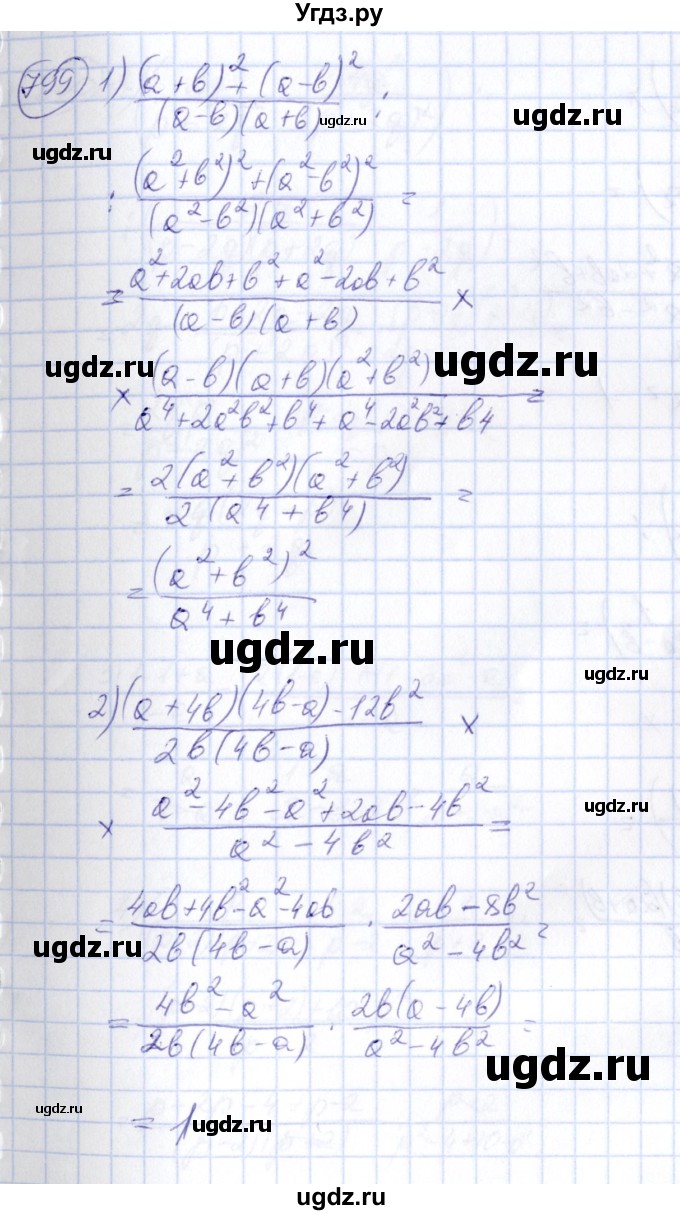 Угдз.ру
799 1) ((a+b)²+(a-b)²)/((a-b)(a+b)) :
ugdz.ru
ugdz.ru
: ((a²+b²)²+(a²-b²)²)/((a²-b²)(a²+b²)) =
= (a²+2ab+b²+a²-2ab+b²)/((a-b)(a+b)) ×
ugdz.ru
ugdz.ru
× ((a-b)(a+b)(a²+b²))/(a⁴+2a²b²+b⁴+a⁴-2a²b²+b4) =
= (2(a²+b²)(a²+b²))/(2(a4+b4)) =
= (a²+b²)²/(a⁴+b⁴)
ugdz.ru
ugdz.ru
2) ((a+4b)(4b-a)-12b²)/(2b(4b-a)) ×
× (a²-4b²-a²+2ab-4b²)/(a²-4b²) =
ugdz.ru
= (4ab+4b²-a²-4ab)/(2b(4b-a)) · (2ab-8b²)/(a²-4b²) =
ugdz.ru
ugdz.ru
= (4b²-a²)/(2b(4b-a)) · (2b(a-4b))/(a²-4b²) =
ugdz.ru
ugdz.ru
= 1
ugdz.ru
ugdz.ru
ugdz.ru